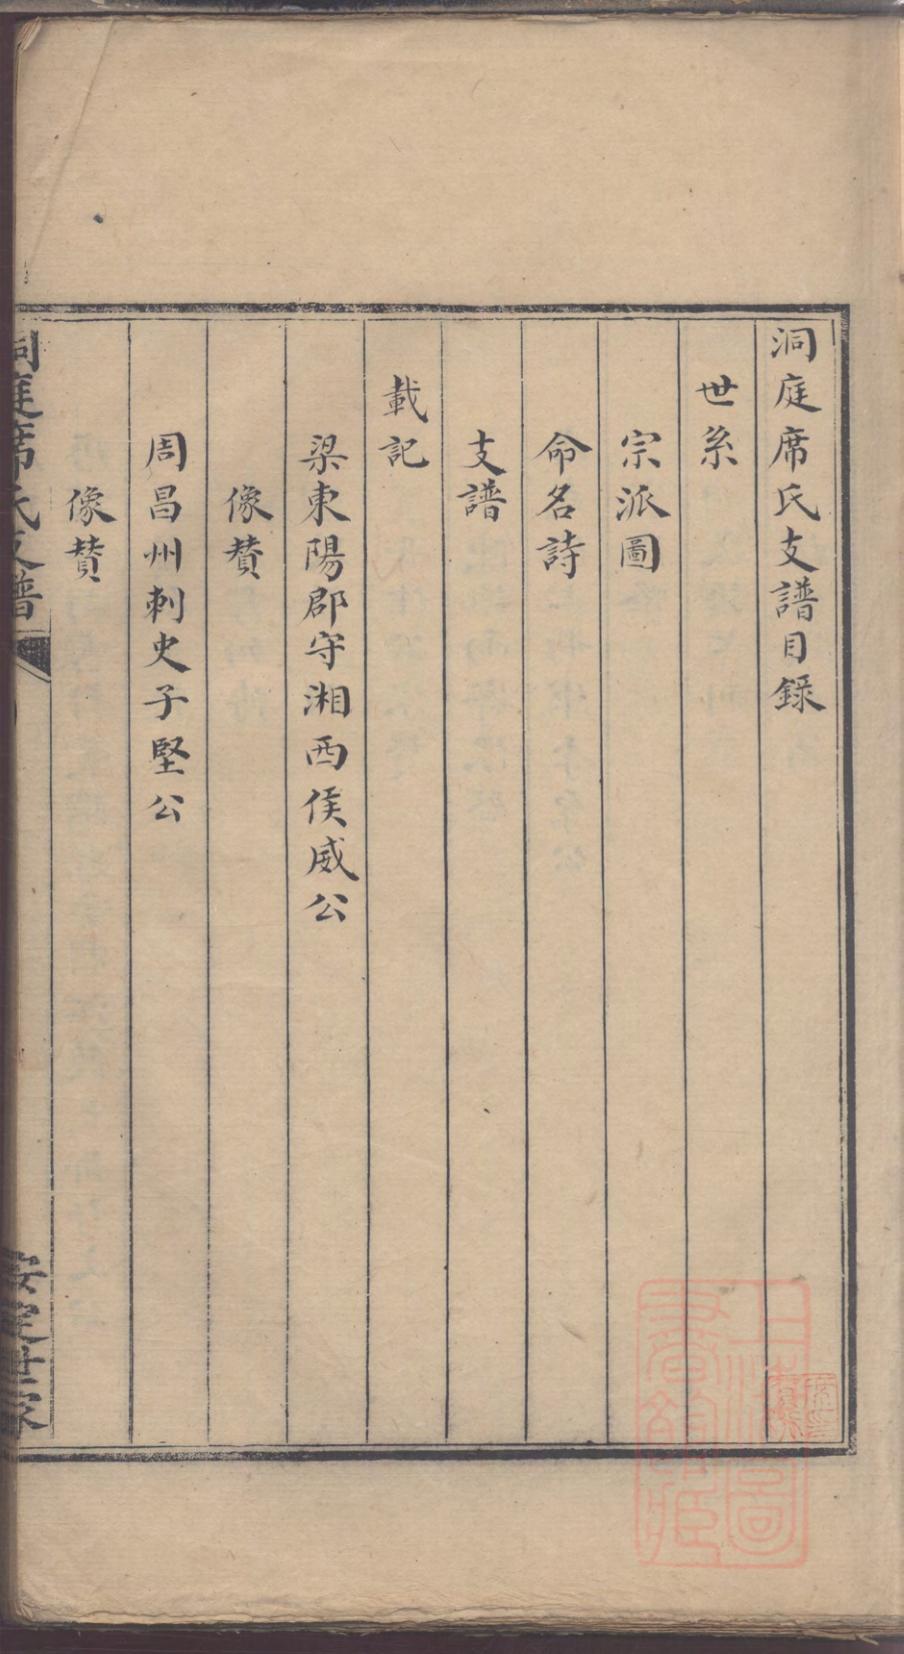 洞庭席氏支譜目錄
世系
宗派圖
命名詩
支譜
載記
梁東陽郡守湘西侯威公
像賛
周昌州刺史子堅公
像賛
洞庭席氏支譜
安定世家
上海圖書館藏